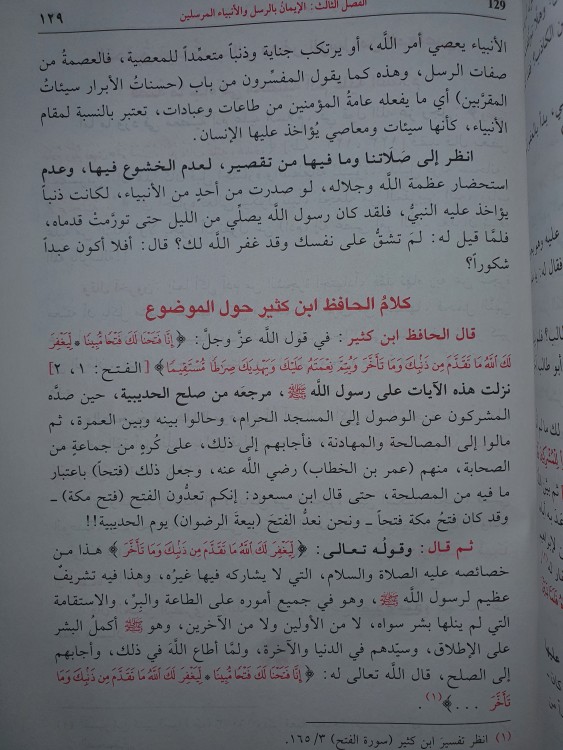 129
الفصل الثالث: الإيمان بالرسل والأنبياء المرسلين
١٢٩
الأنبياء يعصي أمر اللَّه، أو يرتكب جناية وذنباً متعمِّداً للمعصية، فالعصمةُ من
صفات الرسل، وهذه كما يقول المفسِّرون من باب (حسناتُ الأبرار سيئاتُ
المقرَّبين) أي ما يفعله عامةُ المؤمنين من طاعات وعبادات، تعتبر بالنسبة لمقام
الأنبياء، كأنها سيئات ومعاصي يُؤاخذ عليها الإنسان.
انظر إلى صَلَاتنا وما فيها من تقصير، لعدم الخشوع فيها، وعدم
استحضار عظمة اللَّه وجلاله، لو صدرت من أحدٍ من الأنبياء، لكانت ذنباً
يؤاخذ عليه النبيُّ، فلقد كان رسول اللَّه يصلِّي من الليل حتى تورَّمتْ قدماه،
فلمَّا قيل له: لم تشقُّ على نفسك وقد غفر اللَّه لك؟ قال: أفلا أكون عبداً
شكوراً؟
كلامُ الحافظ ابن كثير حول الموضوع
قال الحافظ ابن كثير: في قول اللَّه عزَّ وجلَّ: ﴿إِنَّا فَتَحْنَا لَكَ فَتْحًا مُّبِينًا * لِّيَغْفِرَ
لَكَ اللَّهُ مَا تَقَدَّمَ مِن ذَنۢبِكَ وَمَا تَأَخَّرَ وَيُتِمَّ نِعْمَتَهُ عَلَيْكَ وَيَهْدِيَكَ صِرَٰطًا مُّسْتَقِيمًا﴾ [الفتح: ١، ٢]
نزلت هذه الآيات على رسول اللَّه ﷺ، مرجعَه من صلح الحديبية، حين صدَّه
المشركون عن الوصول إلى المسجد الحرام، وحالوا بينه وبين العمرة، ثم
مالوا إلى المصالحة والمهادنة، فأجابهم إلى ذلك، على كُرهٍ من جماعةٍ من
الصحابة، منهم (عمر بن الخطاب) رضي اللَّه عنه، وجعل ذلك (فتحاً) باعتبار
ما فيه من المصلحة، حتى قال ابن مسعود: إنكم تعدُّون الفتح (فتح مكة) ـ
وقد كان فتحُ مكة فتحاً ـ ونحن نعدُّ الفتحَ (بيعة الرضوان) يوم الحديبية!!
ثم قال: وقولُه تعالى: ﴿لِّيَغْفِرَ لَكَ اللَّهُ مَا تَقَدَّمَ مِن ذَنۢبِكَ وَمَا تَأَخَّرَ﴾ هذا من
خصائصه عليه الصلاة والسلام، التي لا يشاركه فيها غيرُه، وهذا فيه تشريفٌ
عظيم لرسول اللَّه ﷺ، وهو في جميع أموره على الطاعة والبِرِّ، والاستقامة
التي لم ينلها بشر سواه، لا من الأولين ولا من الآخرين، وهو ﷺ أكملُ البشر
على الإطلاق، وسيّدهم في الدنيا والآخرة، ولمَّا أطاع اللَّهَ في ذلك، وأجابهم
إلى الصلح، قال اللَّه تعالى له: ﴿إِنَّا فَتَحْنَا لَكَ فَتْحًا مُّبِينًا * لِّيَغْفِرَ لَكَ اللَّهُ مَا تَقَدَّمَ مِن ذَنۢبِكَ وَمَا
تَأَخَّرَ ...﴾(١).
(١) انظر تفسيرَ ابن كثير (سورة الفتح) ٣/ ١٦٥.